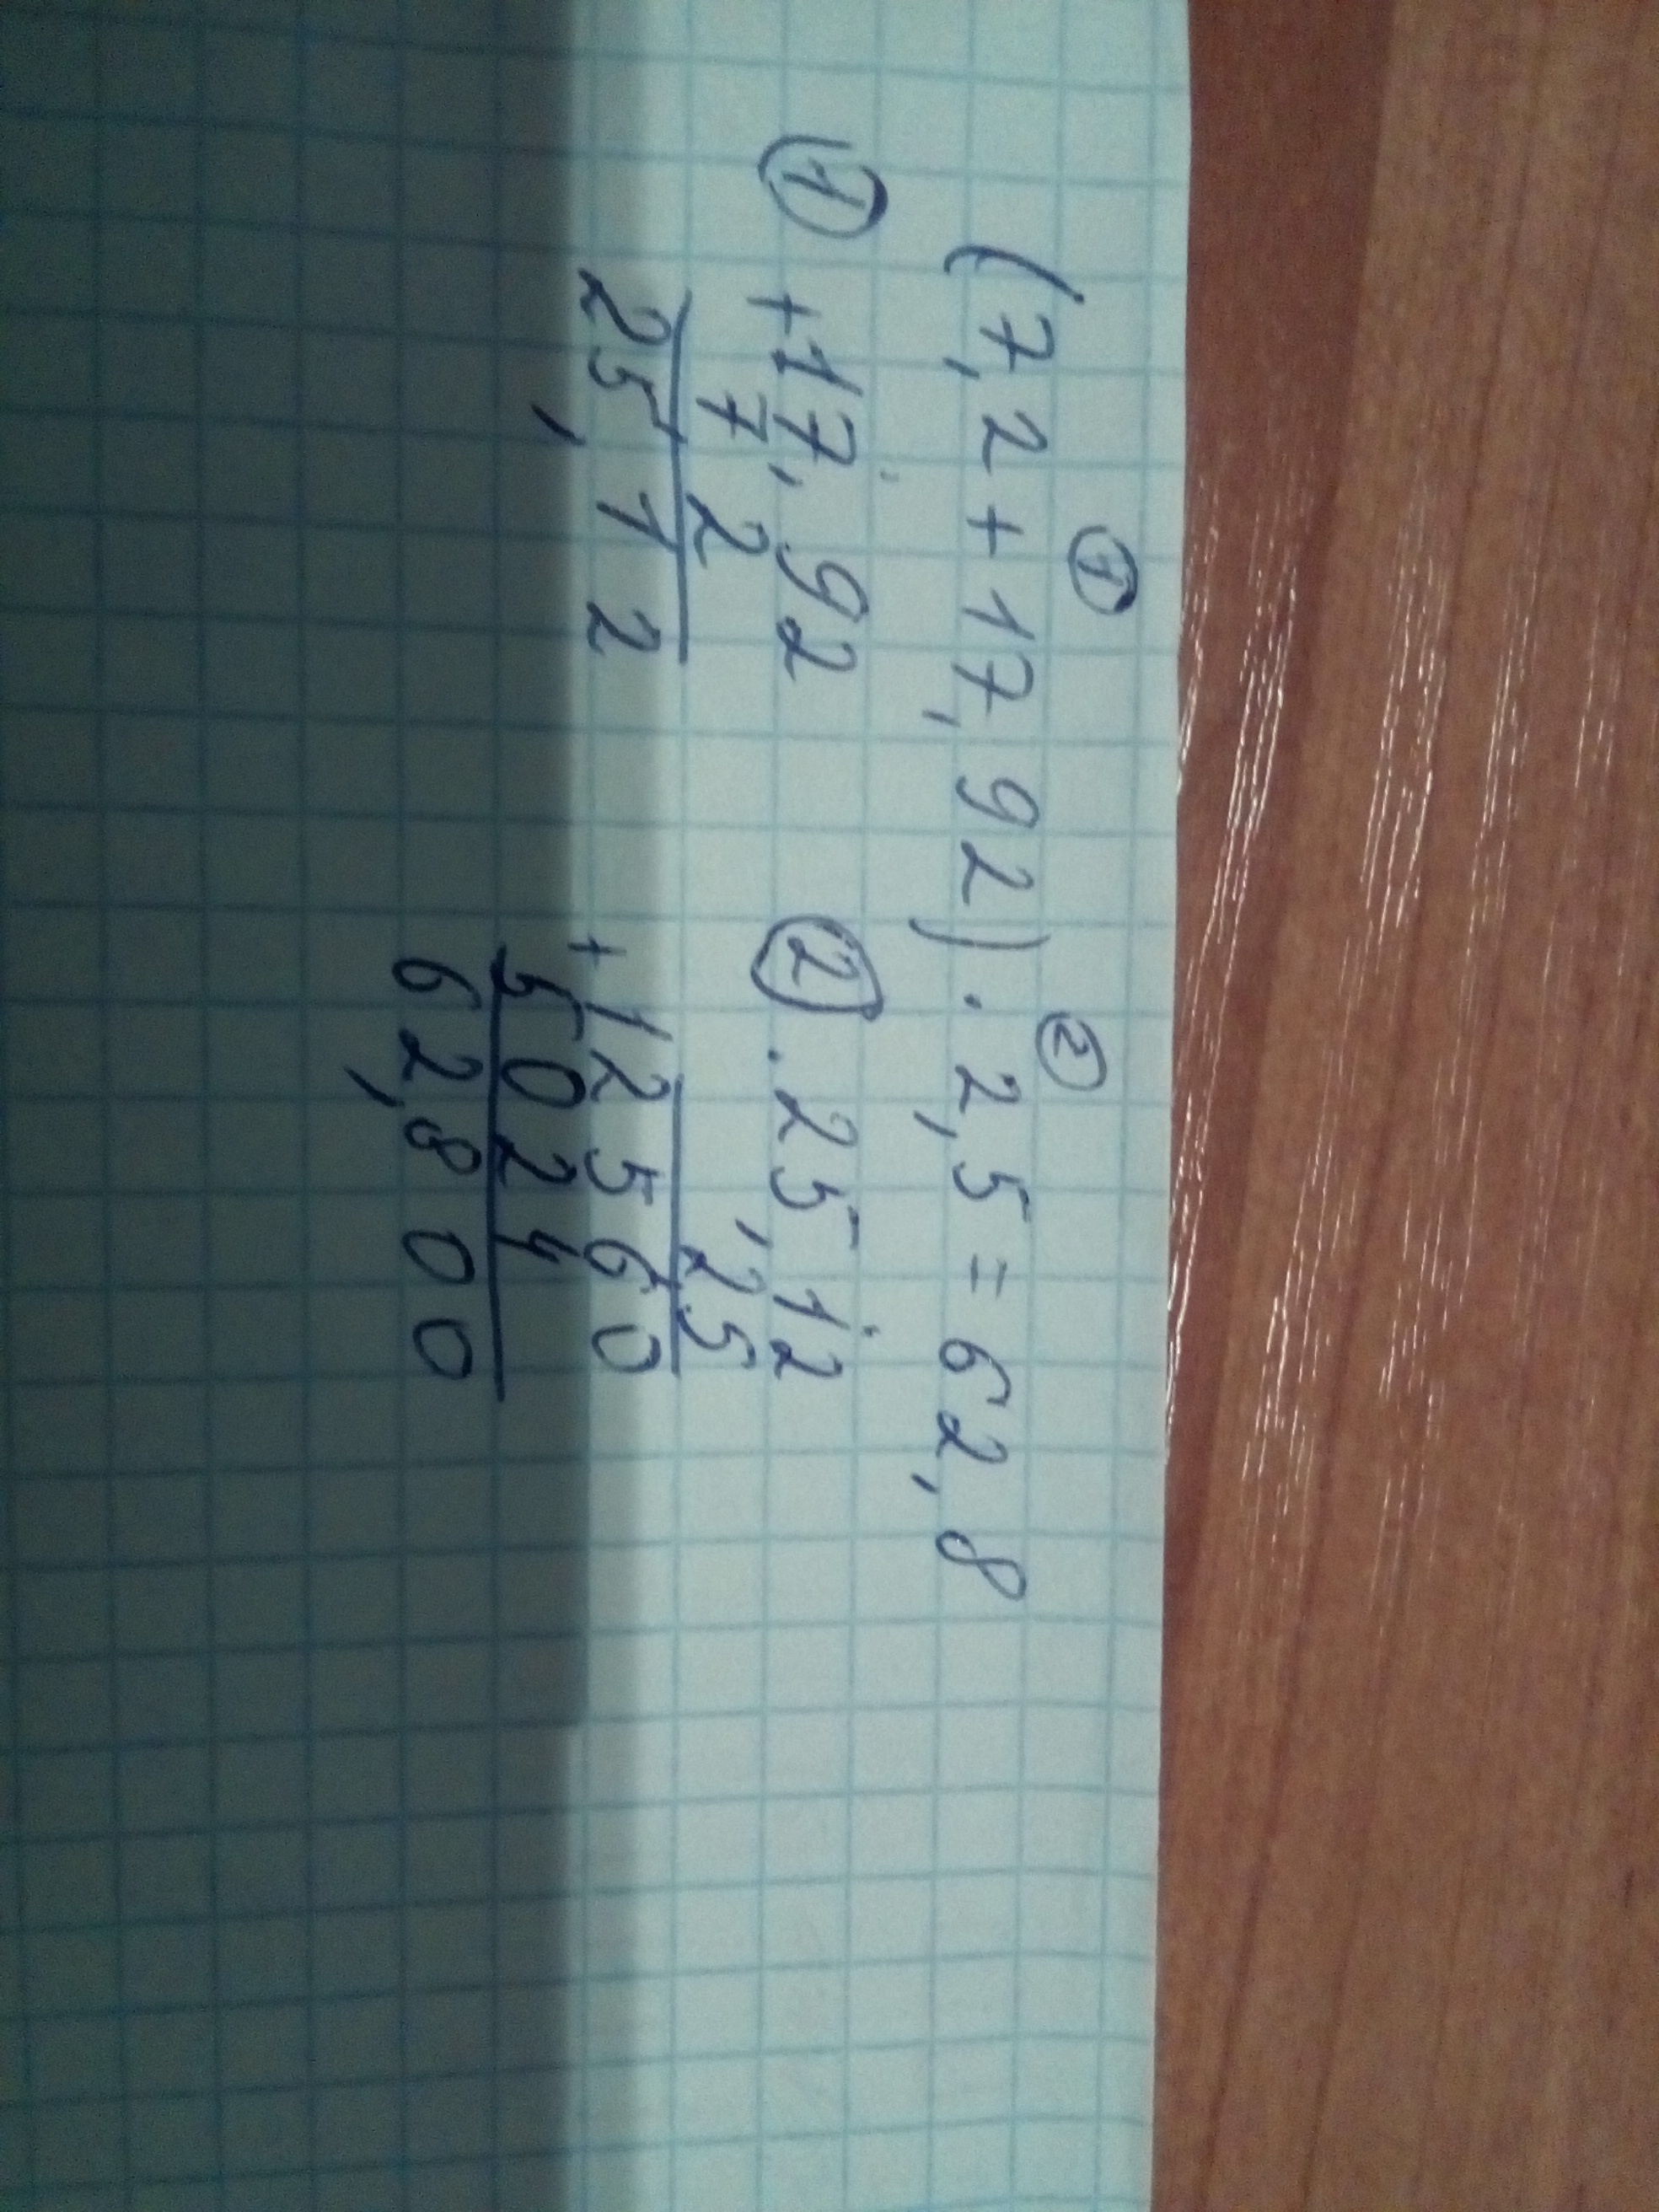 ① ②
(7,2+17,92)·2,5=62,8
① +17,92 ② ·25,12
7 2 2,5
25,12 12560
+ 5024
62,800